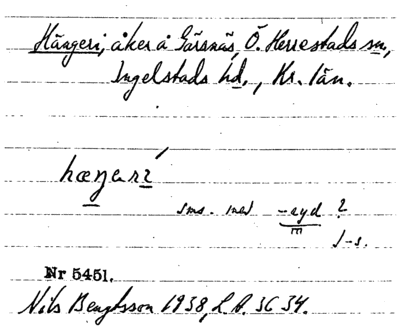 Hängeri, åker å Gärsnäs, Ö. Herrestads sn,
Ingelstads hd., Kr. län.
hæŋarı
sms. med -ryd ?
J-s.
Nr 5451.
Nils Bengtsson 1938, L.A. 3634.